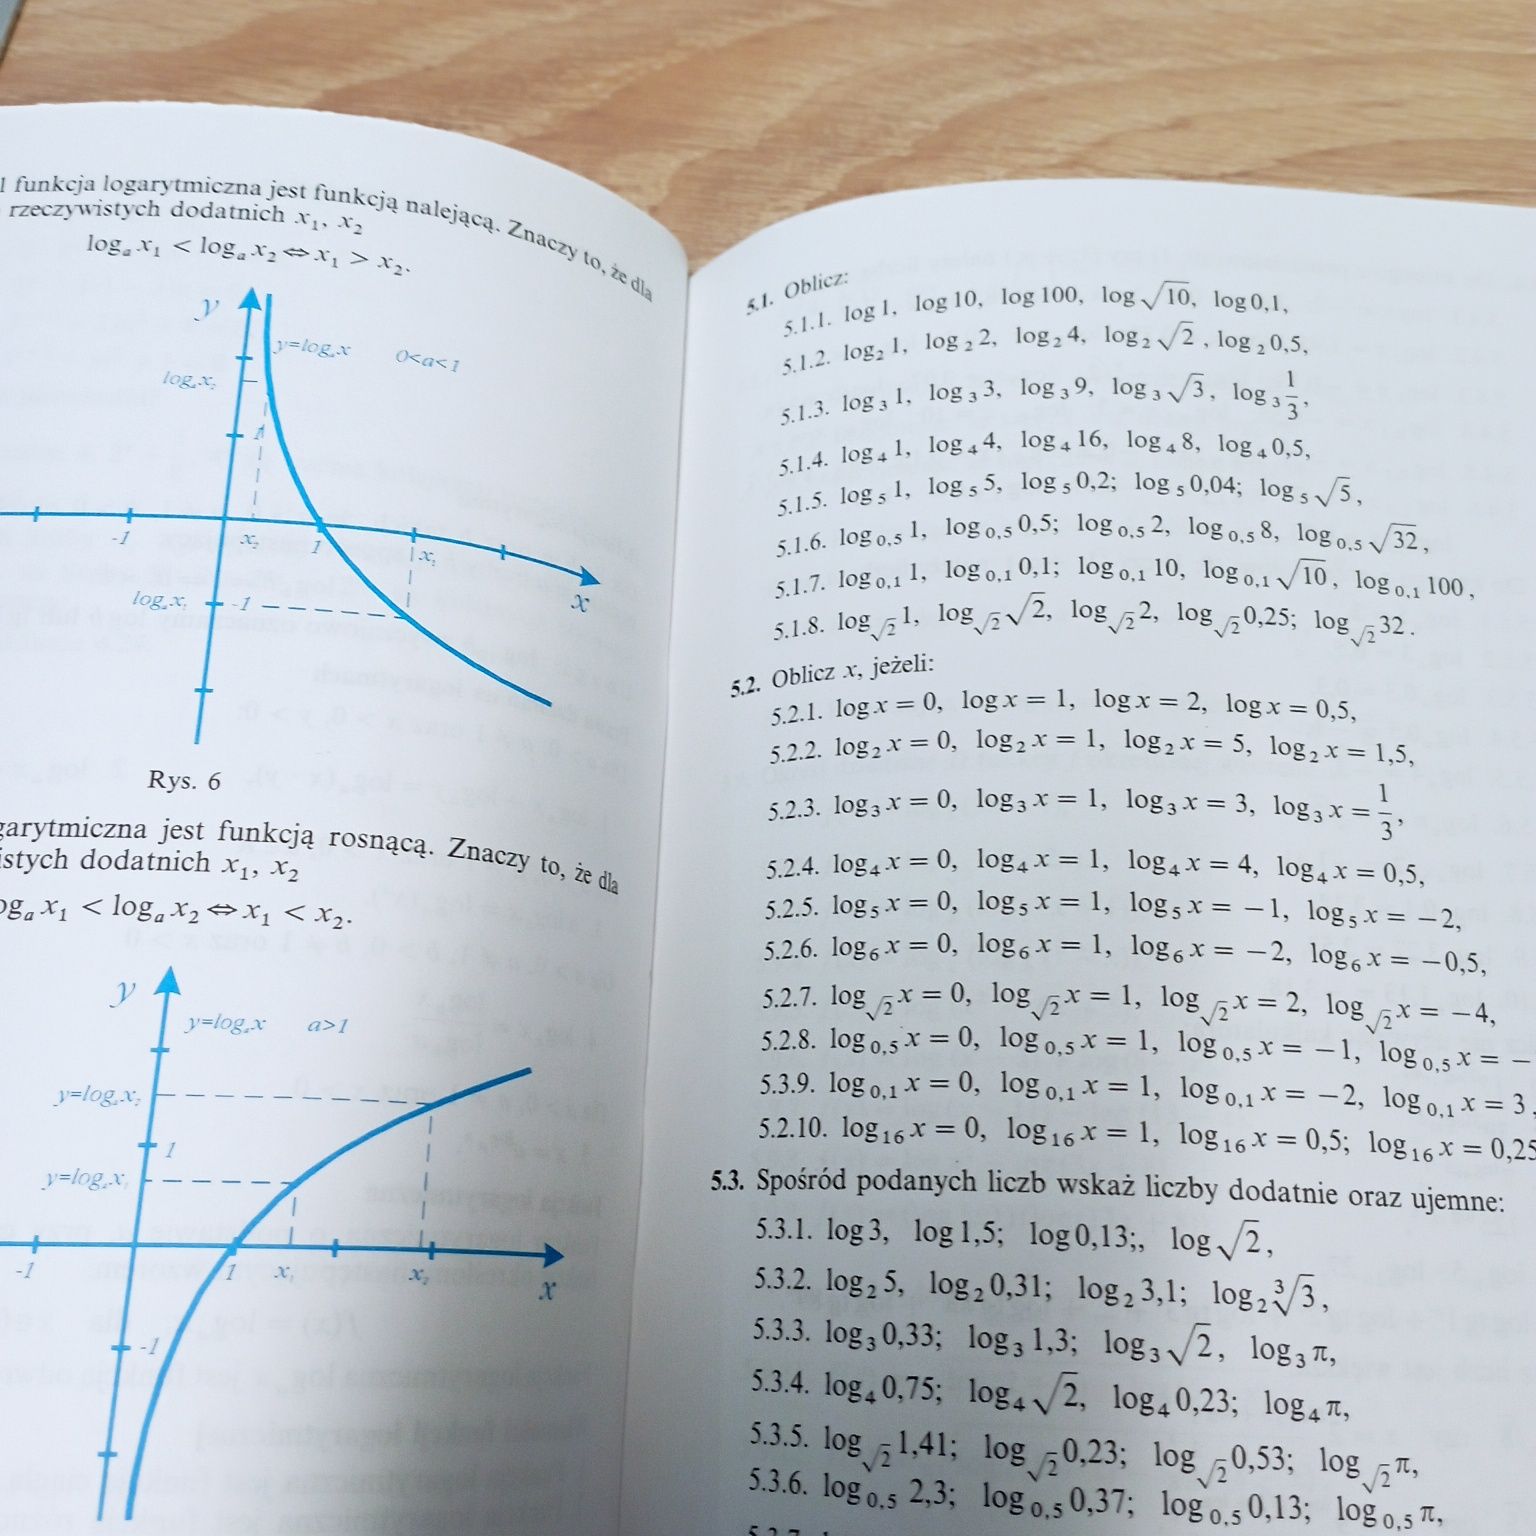 1 funkcja logarytmiczna jest funkcją nalejącą. Znaczy to, że dla
rzeczywistych dodatnich x₁, x₂
logₐ x₁ < logₐ x₂ ⇔ x₁ > x₂.
y
y=logₐx 0<a<1
logₐx₂
1
-1 x₂ 1 x₁
x
logₐx₁ -1
Rys. 6
garytmiczna jest funkcją rosnącą. Znaczy to, że dla
istych dodatnich x₁, x₂
ogₐ x₁ < logₐ x₂ ⇔ x₁ < x₂.
y
y=logₐx a>1
y=logₐx₂
1
y=logₐx₁
-1 1 x₁ x₂
x
-1
5.1. Oblicz:
5.1.1. log 1, log 10, log 100, log √10, log 0,1,
5.1.2. log₂ 1, log₂ 2, log₂ 4, log₂ √2, log₂ 0,5,
5.1.3. log₃ 1, log₃ 3, log₃ 9, log₃ √3, log₃ 1/3,
5.1.4. log₄ 1, log₄ 4, log₄ 16, log₄ 8, log₄ 0,5,
5.1.5. log₅ 1, log₅ 5, log₅ 0,2; log₅ 0,04; log₅ √5,
5.1.6. log₀,₅ 1, log₀,₅ 0,5; log₀,₅ 2, log₀,₅ 8, log₀,₅ √32,
5.1.7. log₀,₁ 1, log₀,₁ 0,1; log₀,₁ 10, log₀,₁ √10, log₀,₁ 100,
5.1.8. log_√2 1, log_√2 √2, log_√2 2, log_√2 0,25; log_√2 32.
5.2. Oblicz x, jeżeli:
5.2.1. log x = 0, log x = 1, log x = 2, log x = 0,5,
5.2.2. log₂ x = 0, log₂ x = 1, log₂ x = 5, log₂ x = 1,5,
5.2.3. log₃ x = 0, log₃ x = 1, log₃ x = 3, log₃ x = 1/3,
5.2.4. log₄ x = 0, log₄ x = 1, log₄ x = 4, log₄ x = 0,5,
5.2.5. log₅ x = 0, log₅ x = 1, log₅ x = −1, log₅ x = −2,
5.2.6. log₆ x = 0, log₆ x = 1, log₆ x = −2, log₆ x = −0,5,
5.2.7. log_√2 x = 0, log_√2 x = 1, log_√2 x = 2, log_√2 x = −4,
5.2.8. log₀,₅ x = 0, log₀,₅ x = 1, log₀,₅ x = −1, log₀,₅ x = −
5.3.9. log₀,₁ x = 0, log₀,₁ x = 1, log₀,₁ x = −2, log₀,₁ x = 3,
5.2.10. log₁₆ x = 0, log₁₆ x = 1, log₁₆ x = 0,5; log₁₆ x = 0,25
5.3. Spośród podanych liczb wskaż liczby dodatnie oraz ujemne:
5.3.1. log 3, log 1,5; log 0,13;, log √2,
5.3.2. log₂ 5, log₂ 0,31; log₂ 3,1; log₂ ∛3,
5.3.3. log₃ 0,33; log₃ 1,3; log₃ √2, log₃ π,
5.3.4. log₄ 0,75; log₄ √2, log₄ 0,23; log₄ π,
5.3.5. log_√2 1,41; log_√2 0,23; log_√2 0,53; log_√2 π,
5.3.6. log₀,₅ 2,3; log₀,₅ 0,37; log₀,₅ 0,13; log₀,₅ π,